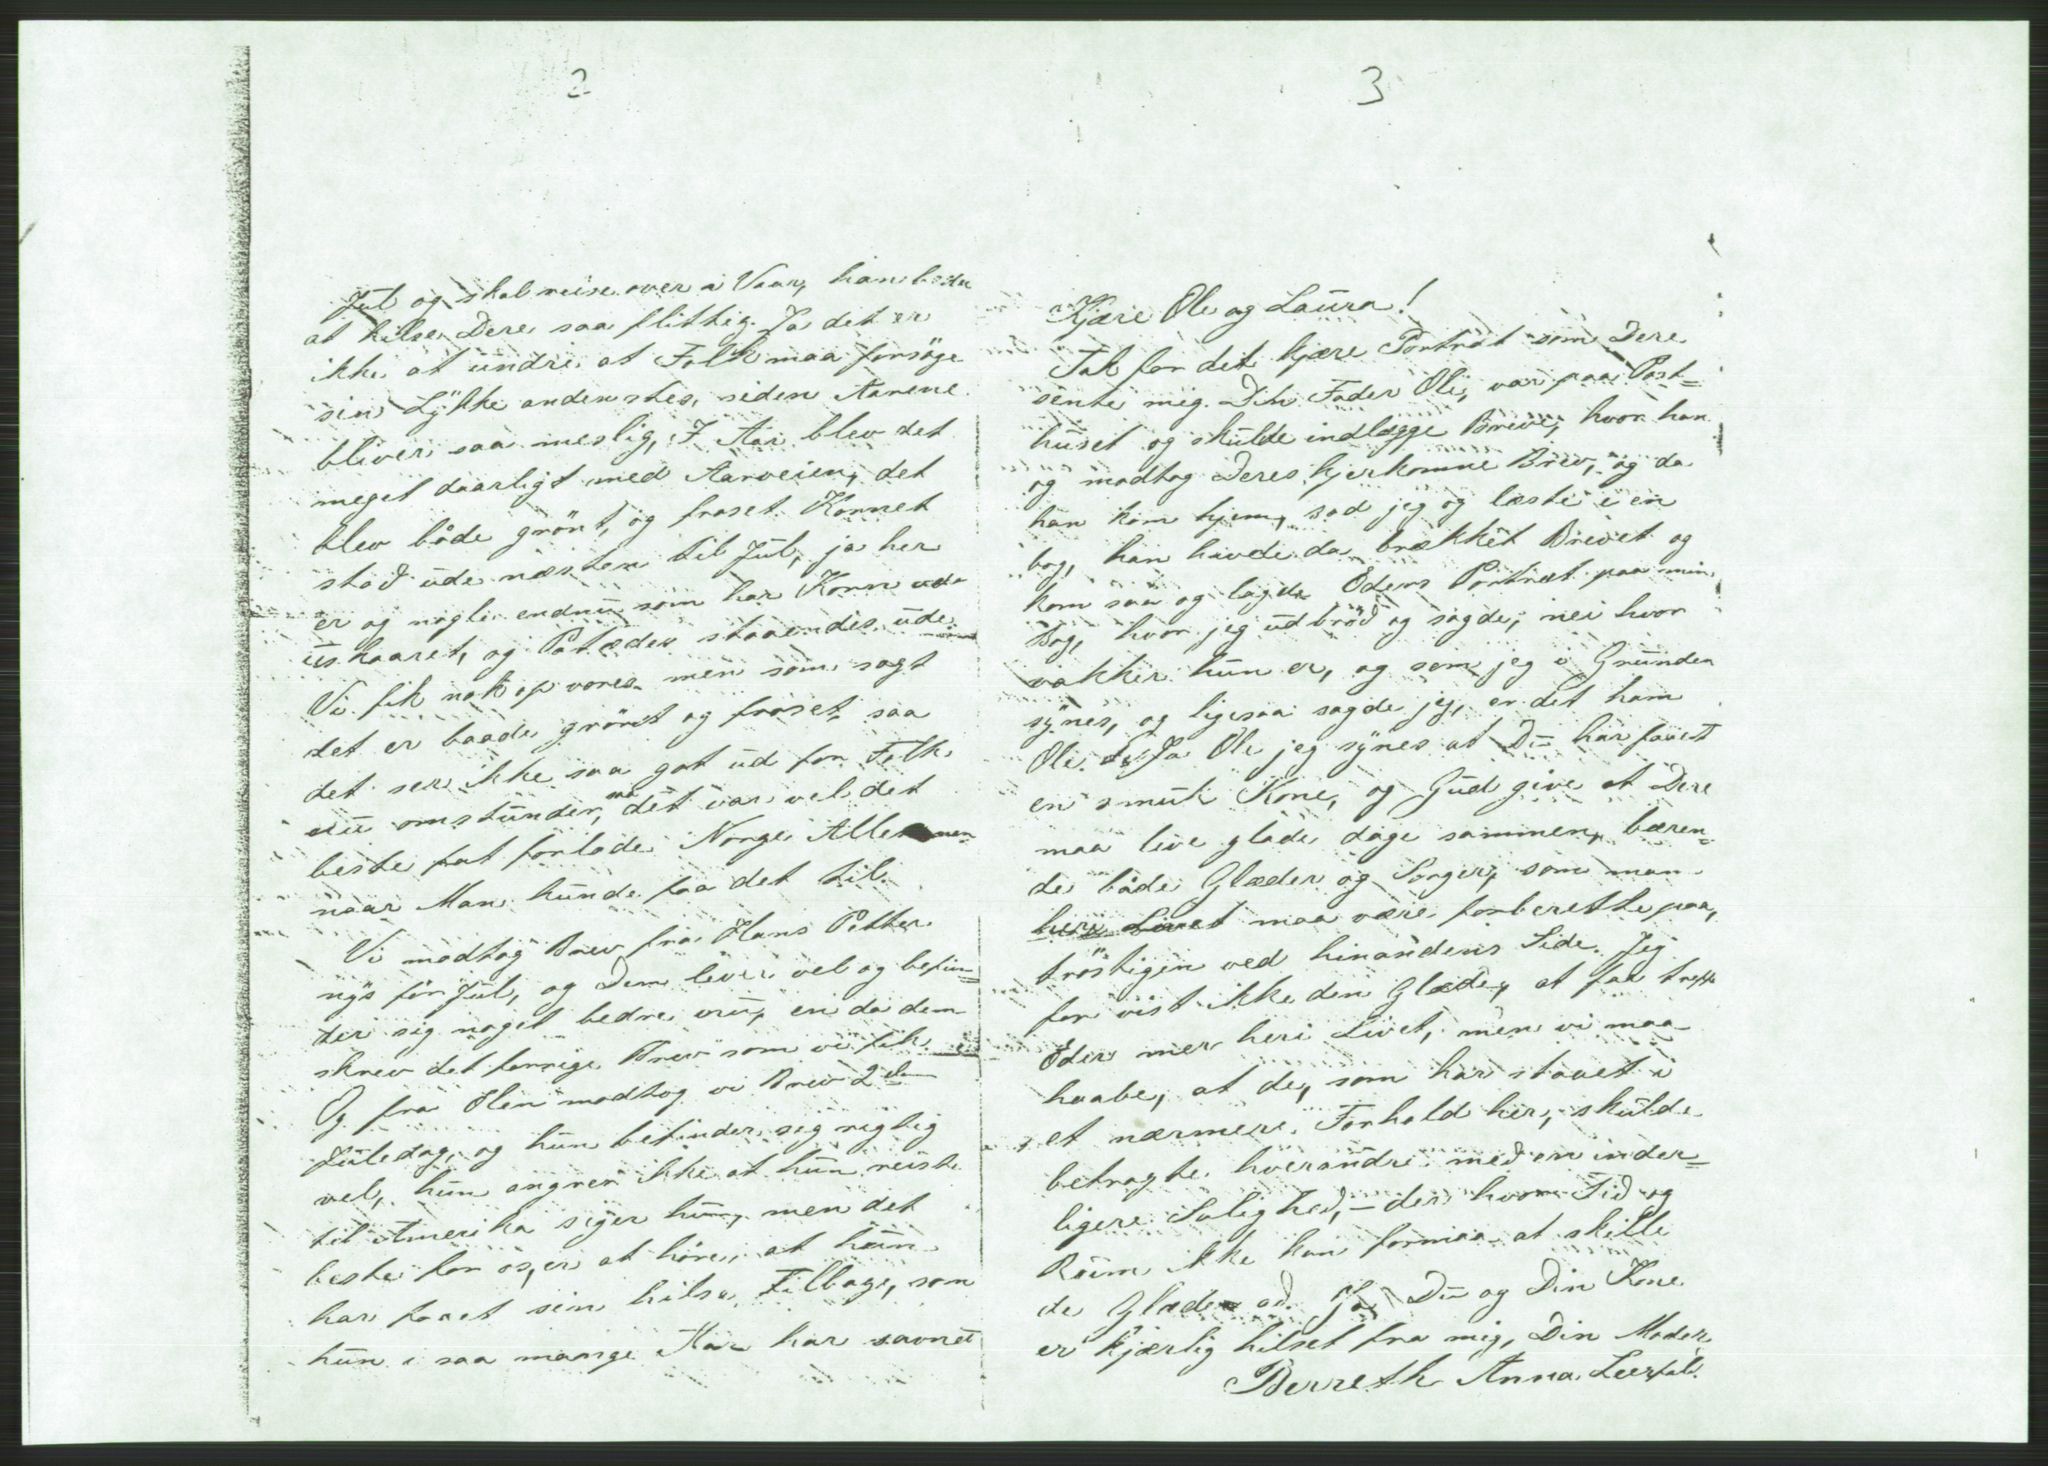 2
Jul og skal reise over i Vaar, han beder
at hilse Dere saa flittig. Ja det er
ikke at undre at Folk maa forsöge
sin Lykke andenstes, siden Aarene
bliver saa meslig, I Aar blev det
meget daarligt med Aarveien, det
blev både grönt, og froset Kornet
stod ude næsten til Jul, ja her
er og nogle endnu som har Korn ude
uskaaret, og Potæder staaendes ude.
Vi fik nok op vores men som sagt
det er baade grönt og froset, saa
det ser ikke saa got ud for Folk
nu omstunder, saa det var vel det
beste for at forlade Norge Alle men
naar Man kunde faa det til.
Vi modtog Brev fra Hans Petter
nys för Jul, og Dem lever vel og befin-
der sig noget bedre nu, en da dem
skrev det forrige Brev som vi fik.
Og fra Olen modtog vi Brev 2den
Juledag, og hun befinder sig rigtig
vel, hun angrer ikke at hun reiste
til Amerika siger hun, men det
beste for os, er at höre, at hun
har faaet sin hilse Tilbage, som
hun i saa mange Aar har savnet
3
Kjære Ole og Laura!
Tak for det kjære Portræt som Dere
sente mig. Din Fader Ole, var paa Post-
huset og skulde indlægge Breve, hvor han
og modtog Deres kjerkomne Brev, og da
han kom hjem, sad jeg og læste i en
bog, han havde da brækket Brevet og
kom saa og lagde Eders Portræt paa min
Bog, hvor jeg udbröd og sagde, nei hvor
vakker hun er, og som jeg i Grunden
synes, og ligesaa sagde jeg, er det ham
Ole. Ja Ole jeg synes at Du har faaet
en smuk Kone, og Gud give at Dere
maa leve glade dage sammen, bæren-
de både Glæder og Sorger, som man
her i Livet maa være forberette paa,
tröstigen ved hinandens Side. Jeg
for vist ikke den Glæde, at faa treffe
Eder mer heri Livet, men vi maa
haabe, at de, som har staaet i
et nærmere Forhold her, skulde
betragte hverandre med en inder-
ligere Salighed, - der hvor Tid og
Rum ikke kan formaa at skille
de Glæde ad. Ja, Du og Din Kone
er kjærlig hilset fra mig, Din Moder
Berreth Anna Leerfal.